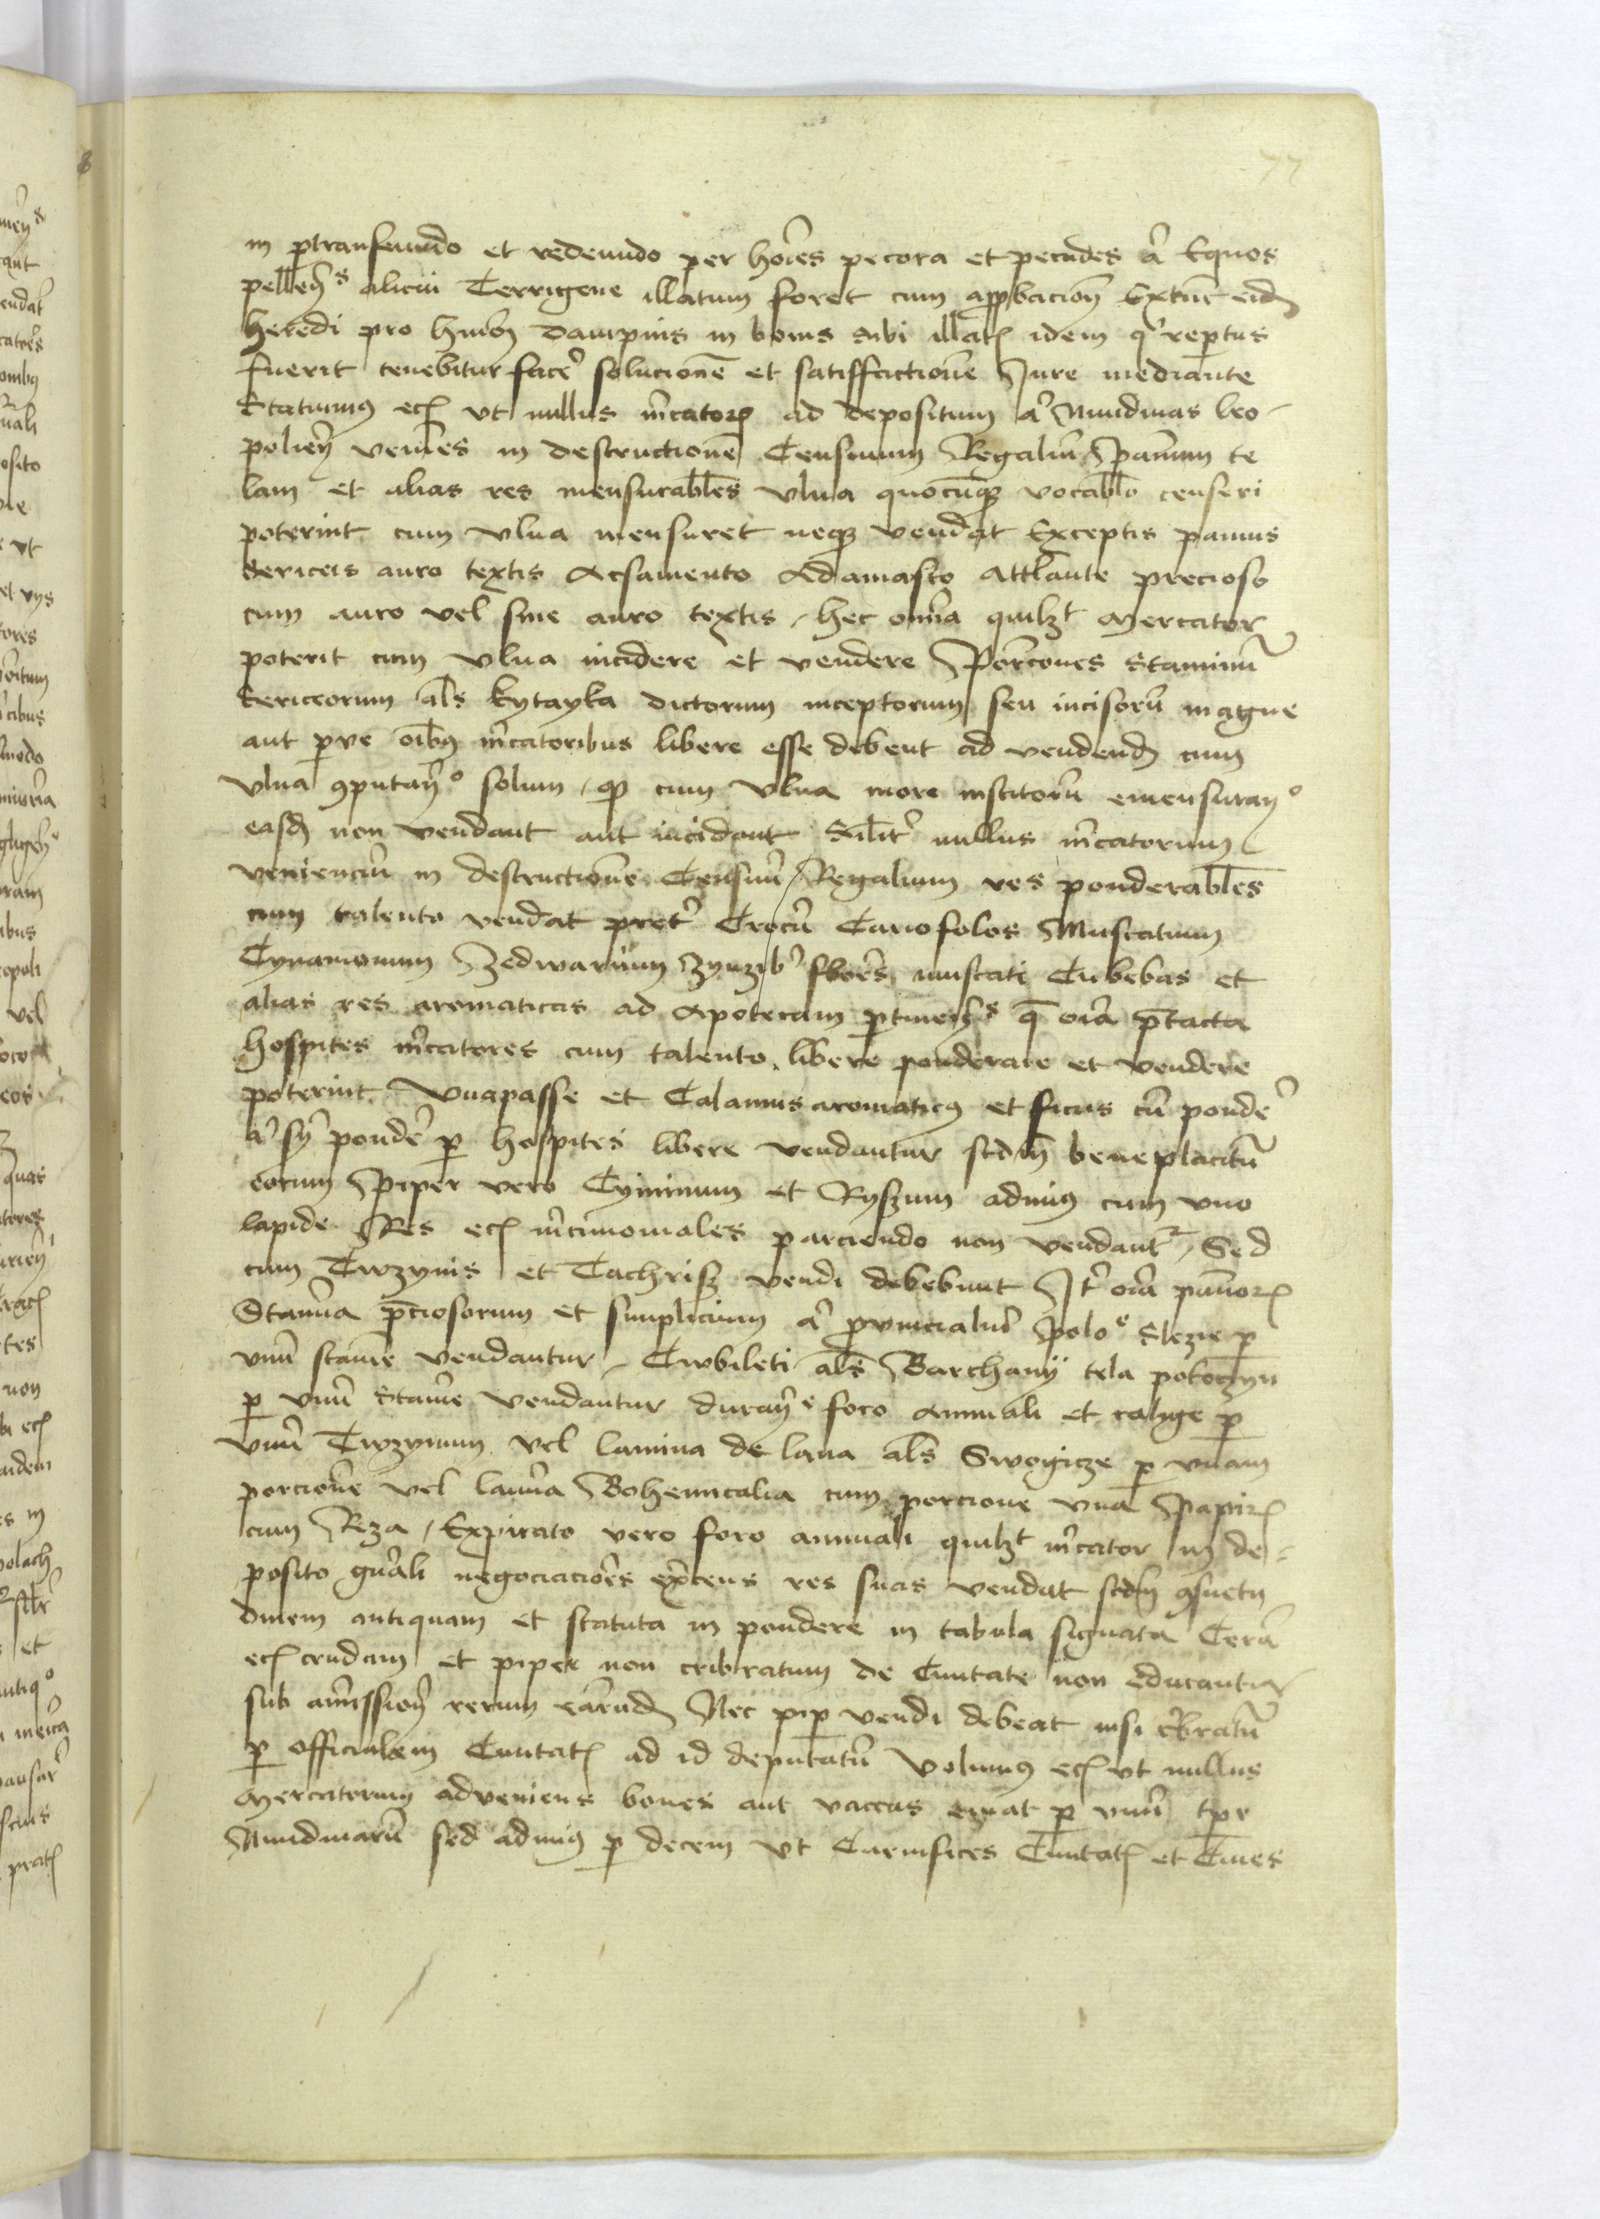 77
in ptranseundo et redeundo per hoies pecora et pecudes a Equos
pellen^s alicui Terrigene illatum foret cum appbacion Extunc eid
heredi pro hmoi dampnis in bonis sibi illat idem q reptus
fuerit tenebitur face solucione et satisfactione Jure mediante
Statuimus ec vt nullus mcator ad depositum a Nundinas leo-
polien venies in destructione Censuum Regaliu Pannum te
lam et alias res mensurabiles vlna quocuqz vocablo censeri
poterint cum vlna mensuret neqz vendat Exceptis pannis
sericeis auro textis Acsamento Adamasco Attlante precioso
cum auro vel sine auro textis / hec omia quilzt Mercator
poterit cum vlna incidere et vendere Porcones staminu
sericeorum als kytayka dictorum inceptorum seu incisoru magne
aut pve oibus mcatoribus libere esse debent ad vendend cum
vlna 9putan^o solum / qp cum vlna more institoru emensuran^o
easd non vendant aut incidant Silit nullus mcatorum
veniencium in destructione Censuu Regalium res ponderabiles
cum talento vendat pret Crocu Cariofolos Muscatum
Cynamonum Zedwarium Zynzib flores muscati Cubebas et
alias res aromaticas ad Apotecam ptinen^s q oia ptacta
hospites mcatores cum talento libere ponderare et vendere
poterint Vuapasse et Calamus aromaticus et ficus cu ponde
a syn ponde p hospites libere vendantur scdm beneplacitu
eorum Piper vero Cyminum et Ryszum admius cum vno
lapide Res ec mcimoniales parciendo non vendant^r / Sed
cum Twzynis et Tachrisz vendi debebunt It oia pannor
Stamia pciosorum et simplicium a pvincialiu Polo^e Slezie p
vnu stame vendantur / Cwbileti als Barchany tela potoczyn
p vnu Stame vendantur duran^e foro Annuali et calige p
vnu Twzynum vel lamina de lana als Swogicze p vnam
porcione vel lamia Bohemicalia cum porcione vna Papir
cum Rza / Expirato vero foro annuali quilzt mcator in de=
posito gnali negociacioes excens res suas vendat scdm 9suetu
dinem antiquam et statuta in pondere in tabula signata Cera
ec crudam et piper non cribratum de Ciuitate non educantur
sub amission rerum earud Nec pip vendi debeat nisi cbratu
p officialem Ciuitat ad id deputatu Volumus ec vt nullus
Mercatorum adveniens boues aut vaccas emat p vnu tpr
Nundinaru sed admius p decem vt Carnifices Ciuitat et Ciues